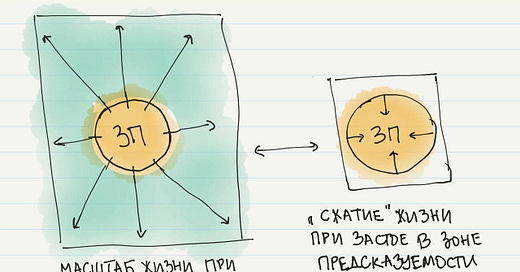 ЗП
МАСШТАБ ЖИЗНИ ПРИ
ЗП
„СЖАТИЕ" ЖИЗНИ
ПРИ ЗАСТОЕ В ЗОНЕ
ПРЕДСКАЗУЕМОСТИ